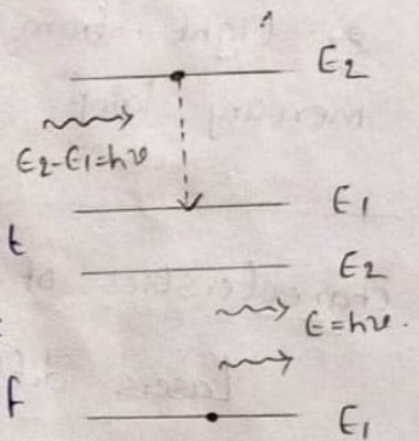 E2
E2-E1=hν
E1
t
E2
E=hν.
f
E1